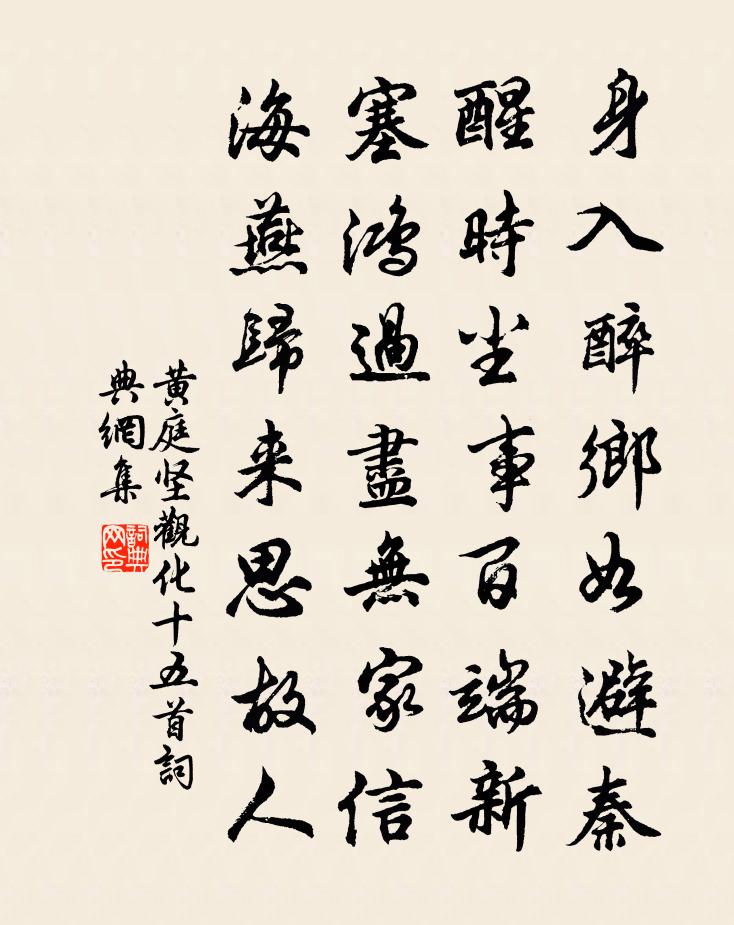 身入醉鄉如避秦
醒時坐事百端新
塞鴻過盡無家信
海燕歸来思故人
黄庭坚觀化十五首詞
典網集
詞典網印